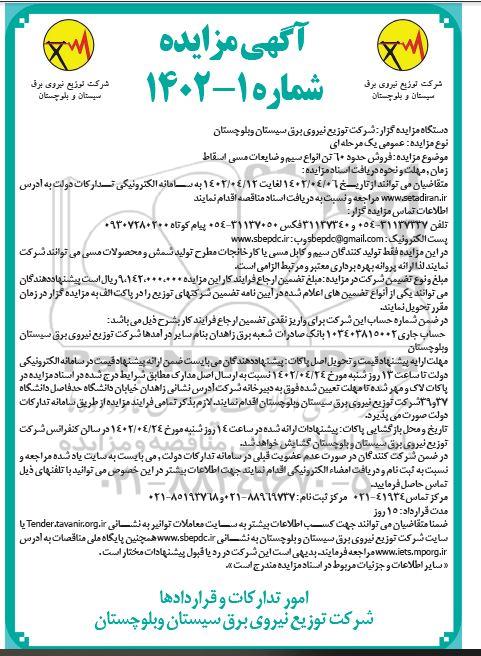 آگهی مزایده
شماره ۱-۱۴۰۲
شرکت توزیع نیروی برق
سیستان و بلوچستان
شرکت توزیع نیروی برق
سیستان و بلوچستان
دستگاه مزایده گزار: شرکت توزیع نیروی برق سیستان وبلوچستان
نوع مزایده: عمومی یک مرحله ای
موضوع مزایده: فروش حدود ۶۰ تن انواع سیم و ضایعات مسی اسقاط
زمان، مهلت و نحوه دریافت اسناد مزایده:
متقاضیان می توانند از تاریخ ۱۴۰۲/۰۴/۰۶ لغایت ۱۴۰۲/۰۴/۱۲ به سامانه الکترونیکی تدارکات دولت به آدرس
www.setadiran.ir مراجعه و نسبت به دریافت اسناد مناقصه اقدام نمایند
اطلاعات تماس مزایده گزار:
تلفن ۳۱۱۳۷۳۳۷-۰۵۴ و ۳۱۱۳۷۳۴۰ فکس ۳۱۱۳۷۰۵۰-۰۵۴ پیام کوتاه ۰۹۳۰۷۲۸۰۲۰۰
پست الکترونیک: sbepdc@gmail.com وب: www.sbepdc.ir
در این مزایده فقط تولید کنندگان سیم و کابل مسی یا کارخانجات مطرح تولید شمش و محصولات مسی می توانند شرکت
نمایند لذا ارائه پروانه بهره برداری معتبر و مرتبط الزامی است.
مبلغ و نوع تضمین شرکت در مزایده: مبلغ تضمین ارجاع فرایند کار این مزایده ۹,۱۴۲,۰۰۰,۰۰۰ ریال است پیشنهاددهندگان
می توانند یکی از انواع تضمین های اعلام شده در آیین نامه تضمین شرکتهای توزیع را در پاکت الف به مزایده گزار در زمان
مقرر تحویل نمایند.
در ضمن شماره حساب این شرکت برای واریز نقدی تضمین ارجاع فرایند کار بشرح ذیل می باشد:
حساب جاری ۰۱۰۳۴۰۳۸۱۵۰۰۲ بانک صادرات شعبه برق زاهدان بنام سایر درآمدها شرکت توزیع نیروی برق سیستان
وبلوچستان
مهلت ارایه پیشنهاد قیمت و تحویل اصل پاکات: پیشنهاددهندگان می بایست ضمن ارائه پیشنهاد قیمت در سامانه الکترونیکی
دولت تا ساعت ۱۳ روز شنبه مورخ ۱۴۰۲/۰۴/۲۴ نسبت به ارسال اصل مدارک مطابق شرایط درج شده در اسناد مزایده در
پاکات لاک و مهر شده تا مهلت تعیین شده فوق به دبیرخانه شرکت آدرس نشانی زاهدان خیابان دانشگاه حدفاصل دانشگاه
۳۷و۳۹ شرکت توزیع نیروی برق سیستان وبلوچستان اقدام نمایند. لازم بذکر تمامی فرایند مزایده از طریق سامانه تدارکات
دولت صورت می پذیرد.
تاریخ و محل بازگشایی پاکات: پیشنهادات ارائه شده در ساعت ۱۴ روز شنبه مورخ ۱۴۰۲/۰۴/۲۴ در سالن کنفرانس شرکت
توزیع نیروی برق سیستان و بلوچستان گشایش خواهد شد.
در ضمن شرکت کنندگان در صورت عدم عضویت قبلی در سامانه تدارکات دولت، می بایست به سایت یاد شده مراجعه و
نسبت به ثبت نام و دریافت امضاء الکترونیکی اقدام نمایند جهت اطلاعات بیشتر در این خصوص می توانید با تلفنهای ذیل
تماس حاصل فرمایید.
مرکز تماس ۴۱۹۳۴-۰۲۱ مرکز ثبت نام: ۸۸۹۶۹۷۳۷-۰۲۱ و ۸۵۱۹۳۷۶۸-۰۲۱
مدت قرارداد: ۱۵ روز
ضمنا متقاضیان می توانند جهت کسب اطلاعات بیشتر به سایت معاملات توانیر به نشانی Tender.tavanir.org.ir یا
سایت شرکت توزیع نیروی برق سیستان و بلوچستان به نشانی www.sbepdc.ir همچنین پایگاه ملی مناقصات به آدرس
www.iets.mporg.ir مراجعه فرمایند. بدیهی است این شرکت در رد یا قبول پیشنهادات مختار است.
« سایر اطلاعات و جزئیات مربوط در اسناد مزایده مندرج است ».
امور تدارکات و قراردادها
شرکت توزیع نیروی برق سیستان وبلوچستان